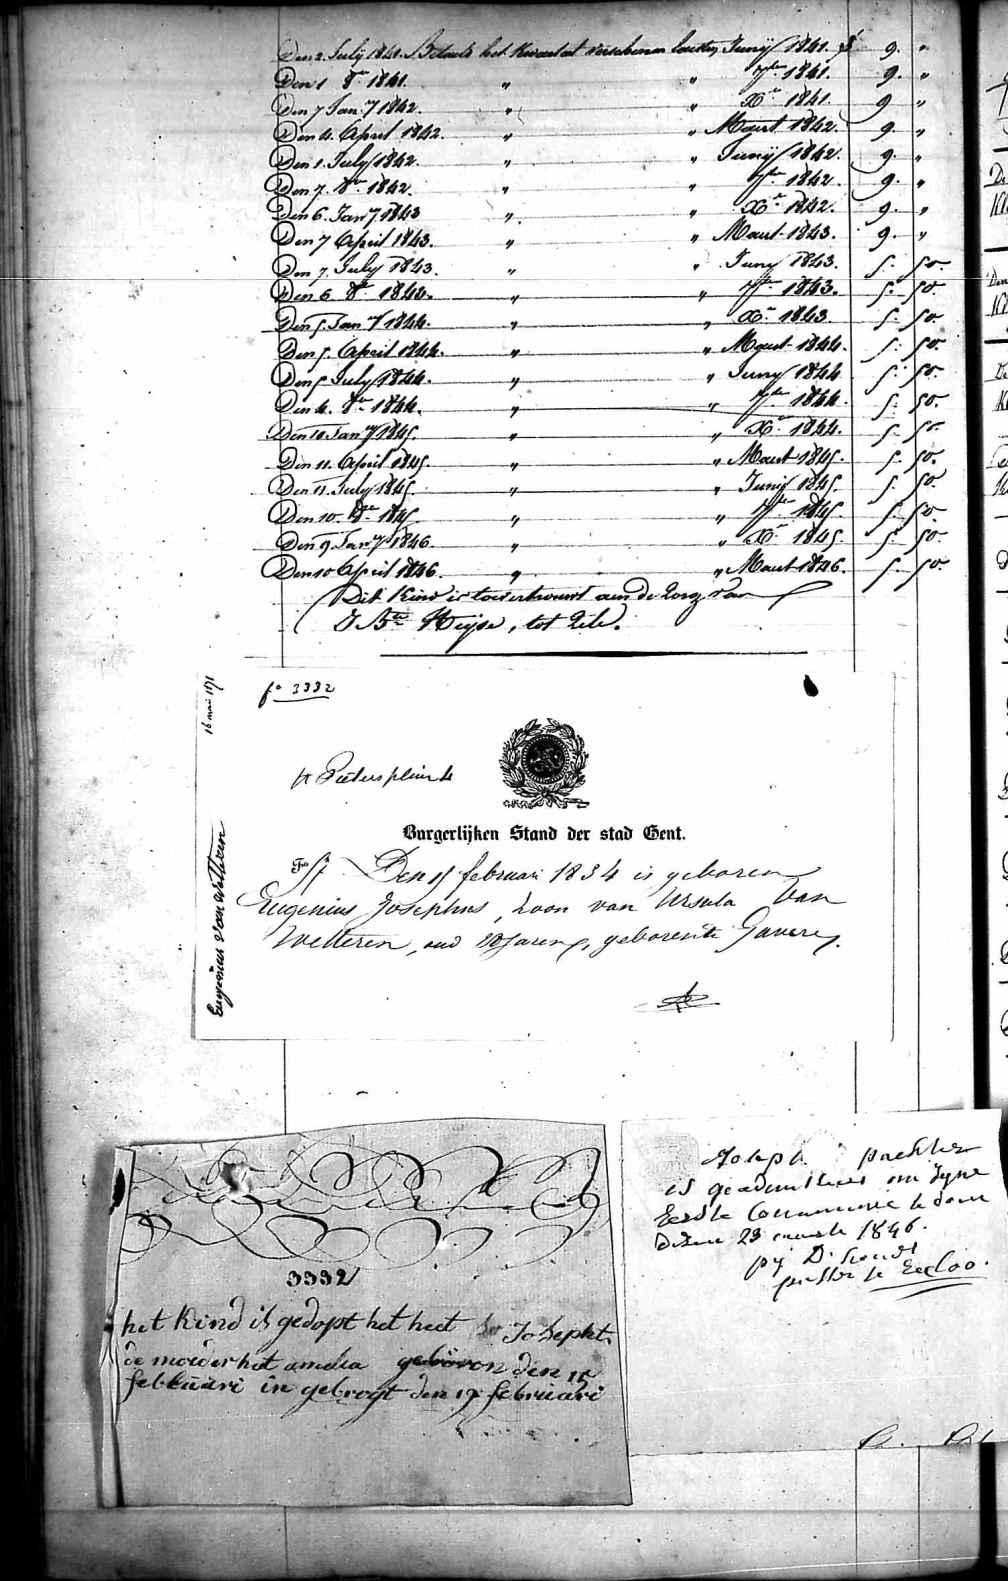 Den 2 July 1841. Betaald het Kwartaal verschenen laasten Junij 1841. f 9. "
Den 1 8er 1841. " " 7ber 1841. 9. "
Den 7 Jany 1842. " " Xr 1841. 9 "
Den 4. April 1842. " " Maart 1842. 9. "
Den 1. July 1842. " " Junij 1842. 9. "
Den 7. 8er 1842. " " 7ber 1842. 9. "
Den 6. Jany 1843 " " Xr 1842. 9. "
Den 7 April 1843. " " Maart 1843. 9. "
Den 7. July 1843. " " Juny 1843. 5. 50.
Den 6 8er 1843. " " 7ber 1843. 5. 50.
Den 5. Jany 1844. " " Xr 1843. 5. 50.
Den 5. April 1844. " " Maart 1844. 5. 50.
Den 5 July 1844. " " Juny 1844 5. 50.
Den 4. 8er 1844. " " 7ber 1844. 5. 50.
Den 10. Jany 1845. " " Xr 1844. 5. 50.
Den 11. April 1845. " " Maart 1845. 5. 50.
Den 11. July 1845. " " Junij 1845. 5. 50.
Den 10. 8er 1845. " " 7ber 1845. 5. 50.
Den 9 Jany 1846. " " Xr 1845. 5. 50.
Den 10 April 1846. " " Maart 1846. 5. 50.
Dit Kind is toevertrouwt aen de Zorg van
J Bte Heyse, tot Zele.
fo 3332
16 mai 1871
St Pietersplein 4
Burgerlijken Stand der stad Gent.
Den 15 februari 1834 is geboren
Eugenius Josephus, zoon van Ursula Van
Welteren, oud jaren, geboren te Gavere.
Eugenius Van Welteren
3332
het Kind is gedopt het heet Josepht
de moeder het amelia geboren den 15
februari in gebrogt den 17 februari
Joseph
is geadmitteert om Zyne
Eerste Communie te doen
dezen 23 maerte 1846.
pr D.
pastor te Eecloo.